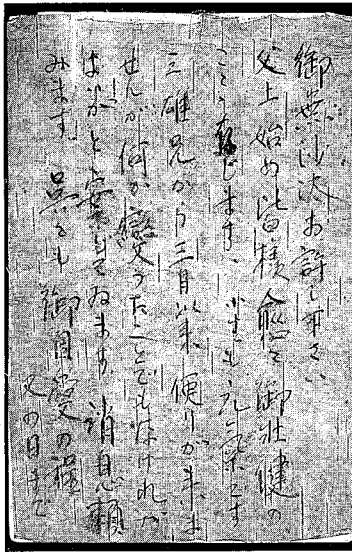 御無沙汰お許し下さい
父上始め皆様愈々御壮健の
ことう存じます、小生も元気です
三雄兄から三月以来便りが来ま
せんが何か変ったことでもなければ
よいがと案じてゐます消息頼
みます、呉々も御自愛の程
又の日まで